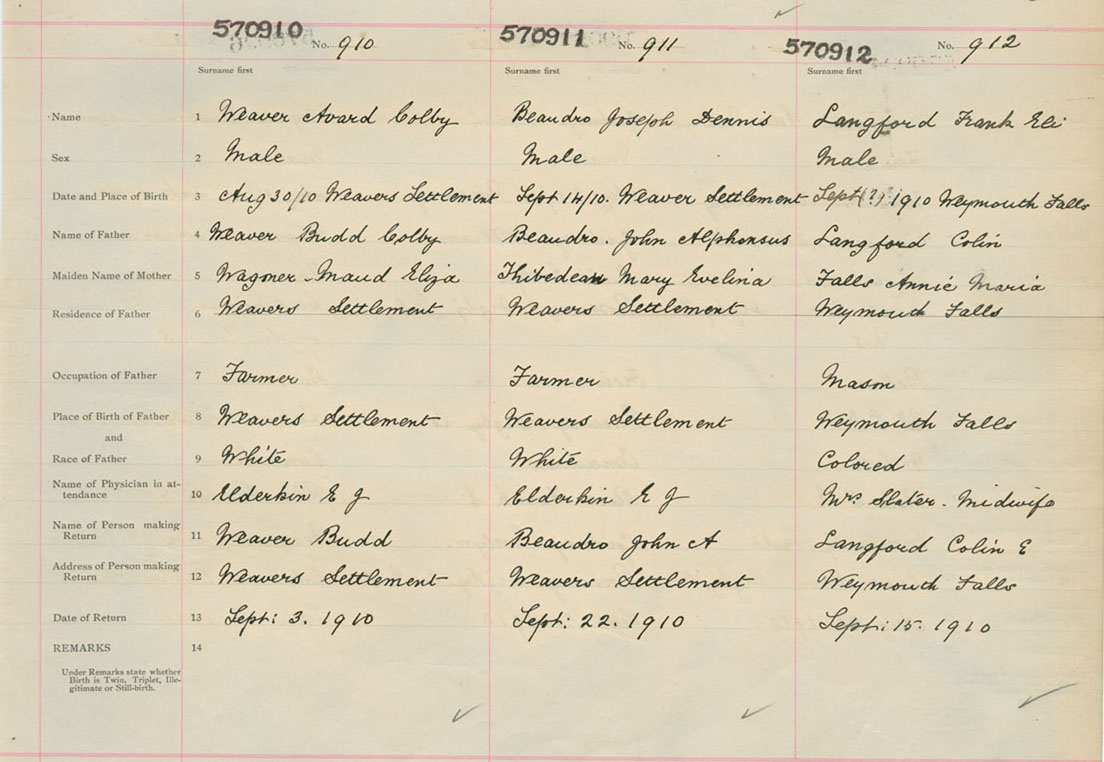 570910 No. 910 570911 No. 911 570912 No. 912
Surname first Surname first Surname first
Name 1 Weaver Avard Colby Beaudro Joseph Dennis Langford Frank Eli
Sex 2 Male Male Male
Date and Place of Birth 3 Aug 30/10 Weavers Settlement Sept 14/10. Weaver Settlement Sept (?) 1910 Weymouth Falls
Name of Father 4 Weaver Budd Colby Beaudro. John Alphonsus Langford Colin
Maiden Name of Mother 5 Wagner - Maud Eliza Thibedeau Mary Evelina Falls Annie Maria
Residence of Father 6 Weavers Settlement Weavers Settlement Weymouth Falls
Occupation of Father 7 Farmer Farmer Mason
Place of Birth of Father 8 Weavers Settlement Weavers Settlement Weymouth Falls
and
Race of Father 9 White White Colored
Name of Physician in at-
tendance 10 Elderkin E J Elderkin E J Mrs Slater. Midwife
Name of Person making
Return 11 Weaver Budd Beaudro John A Langford Colin E
Address of Person making
Return 12 Weavers Settlement Weavers Settlement Weymouth Falls
Date of Return 13 Sept: 3. 1910 Sept: 22. 1910 Sept: 15. 1910
REMARKS 14
Under Remarks state whether
Birth is Twin, Triplet, Ille-
gitimate or Still-birth.